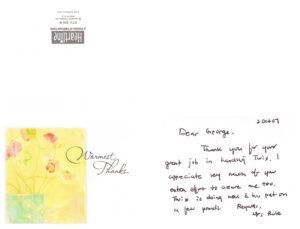 Heartline
2 Oct 07
Dear George,
Thank you for your
great job in handling Trix. I
appreciate very much of your
extra effort to assure me too.
Trix is doing well & has put on
a few pounds. Regards,
Mrs
Warmest
Thanks